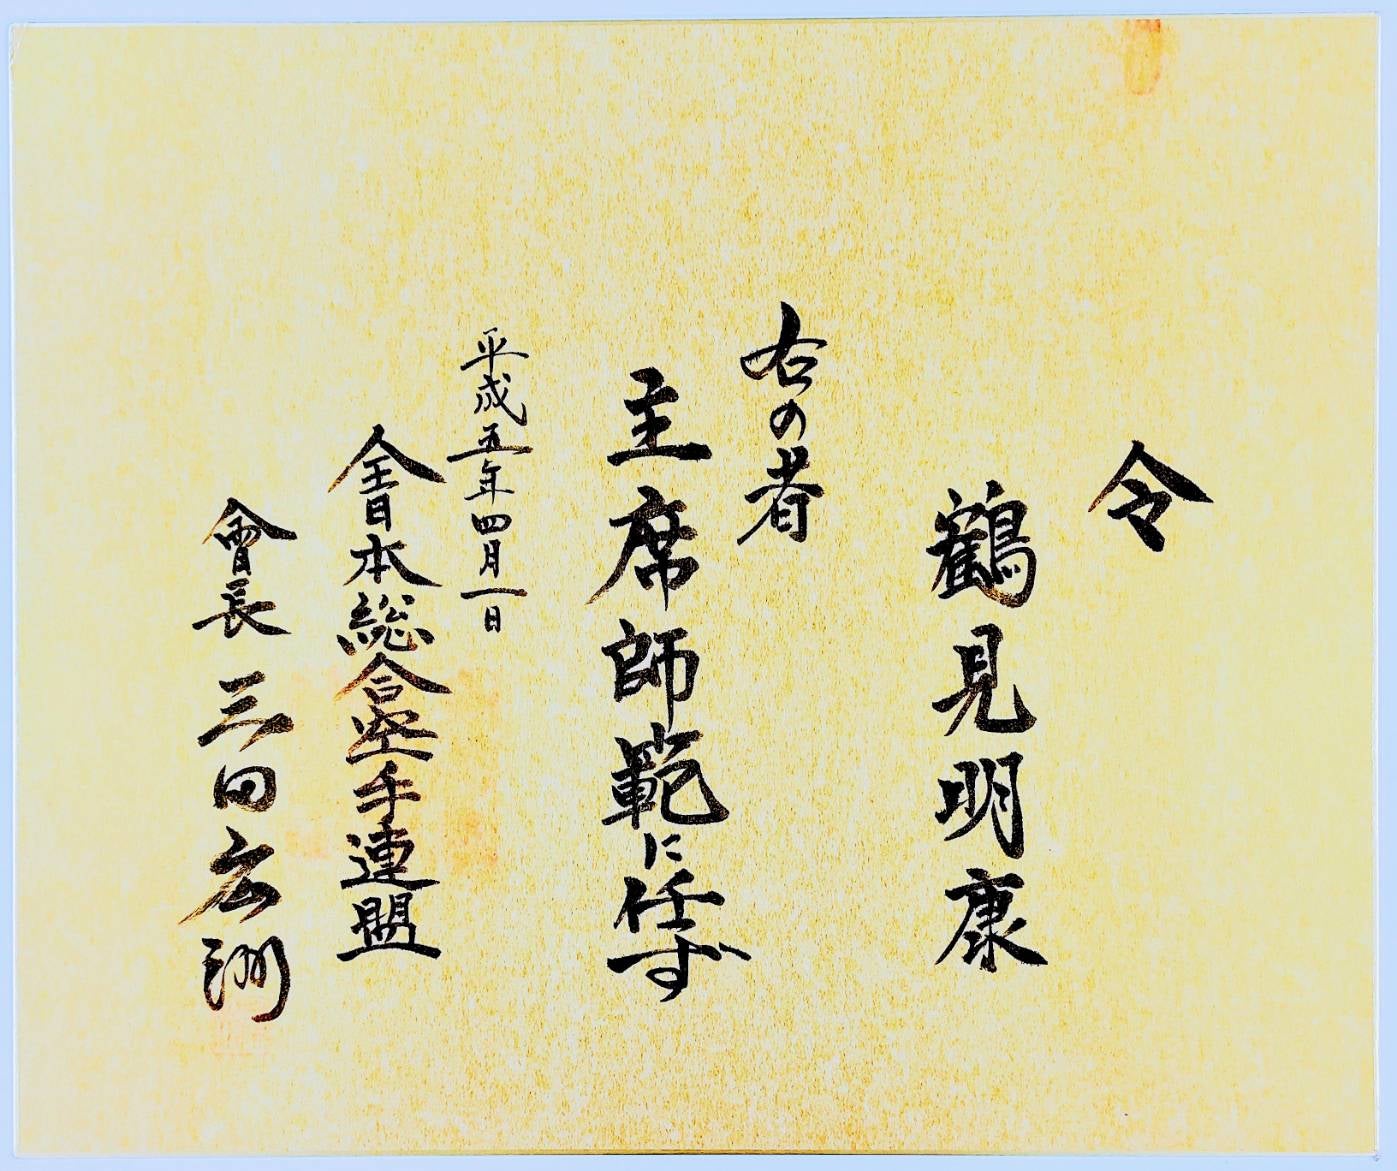 令
鶴見明康
右の者
主席師範に任ず
平成五年四月一日
全日本総合空手連盟
會長 三田宏洲